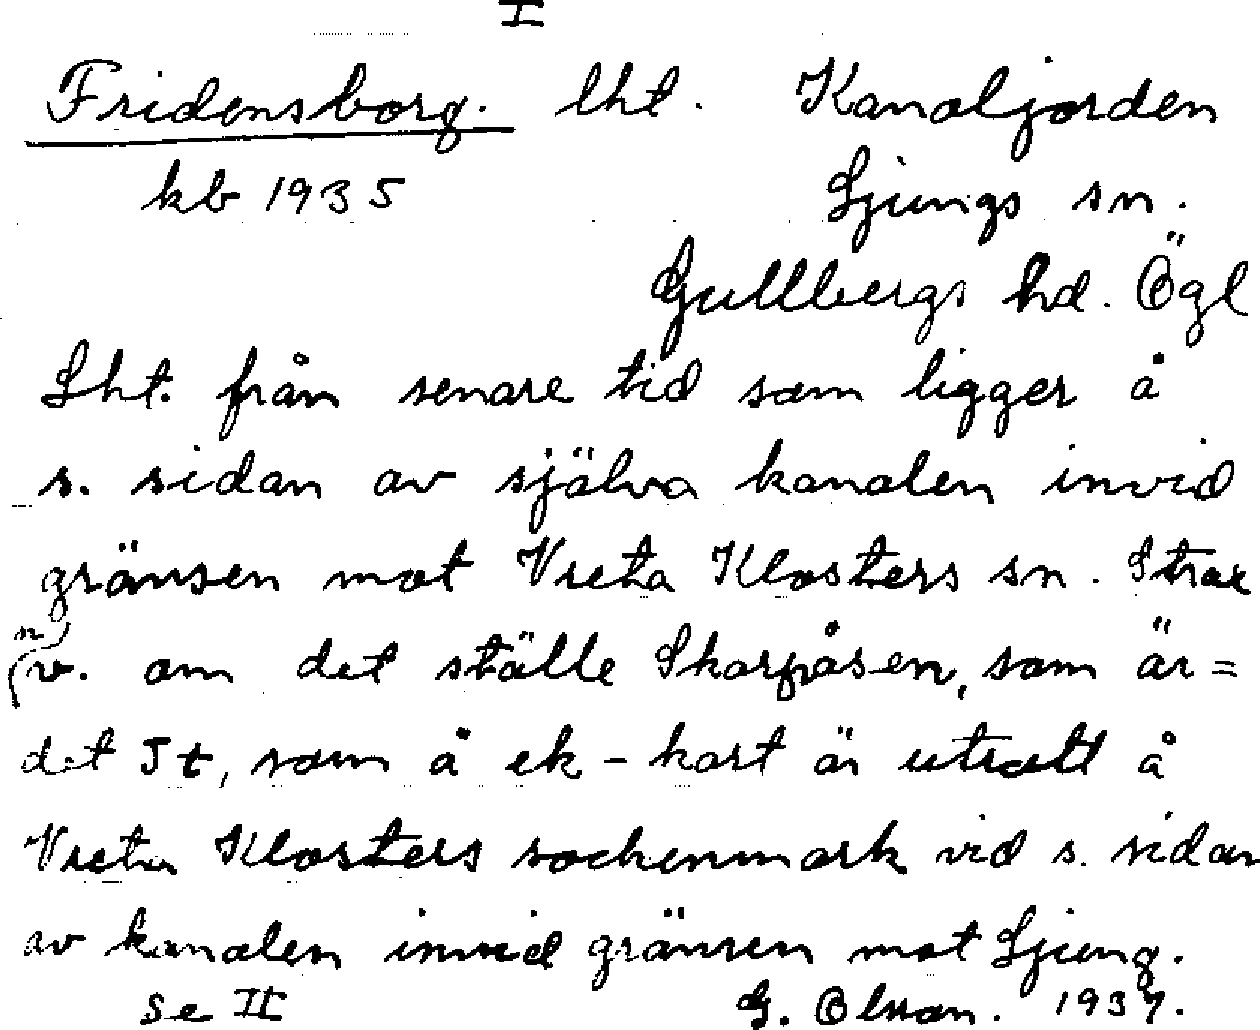 I
Fridensborg. lht. Kanaljorden
kb 1935 Ljungs sn.
Gullbergs hd. Ögl
Lht. från senare tid som ligger å
s. sidan av själva kanalen invid
gränsen mot Vreta Klosters sn. Strax
n) (v. om det ställe Skarpåsen, som är =
det Jt, som å ek-kart är utsatt å
Vreta Klosters sockenmark vid s. sidan
av kanalen invid gränsen mot Ljung.
se II G. Olsson. 1937.